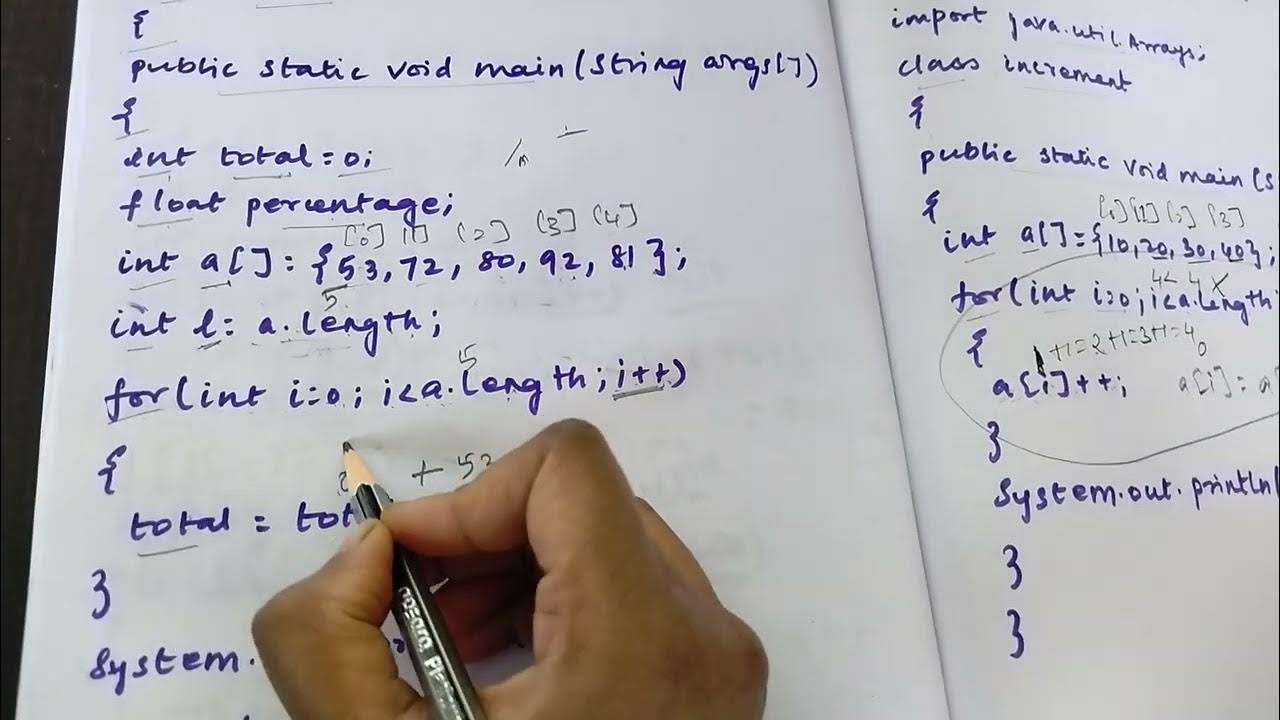 {
public static void main(String args[])
{
int total=0;
float percentage;
[0] [1] [2] [3] [4]
int a[]={53,72,80,92,81};
5
int l= a.length;
5
for(int i=0; i<a.length; i++)
{
+ 53
total = tot
}
System.
import java.util.Arrays;
class increment
{
public static void main(S
{
[0] [1] [2] [3]
int a[]={10,20,30,40};
4< 4 X
for(int i=0; i<a.length;
{
+1=2+1=3+1=4
0
a[i]++; a[i]= a
}
System.out.println(
}
}